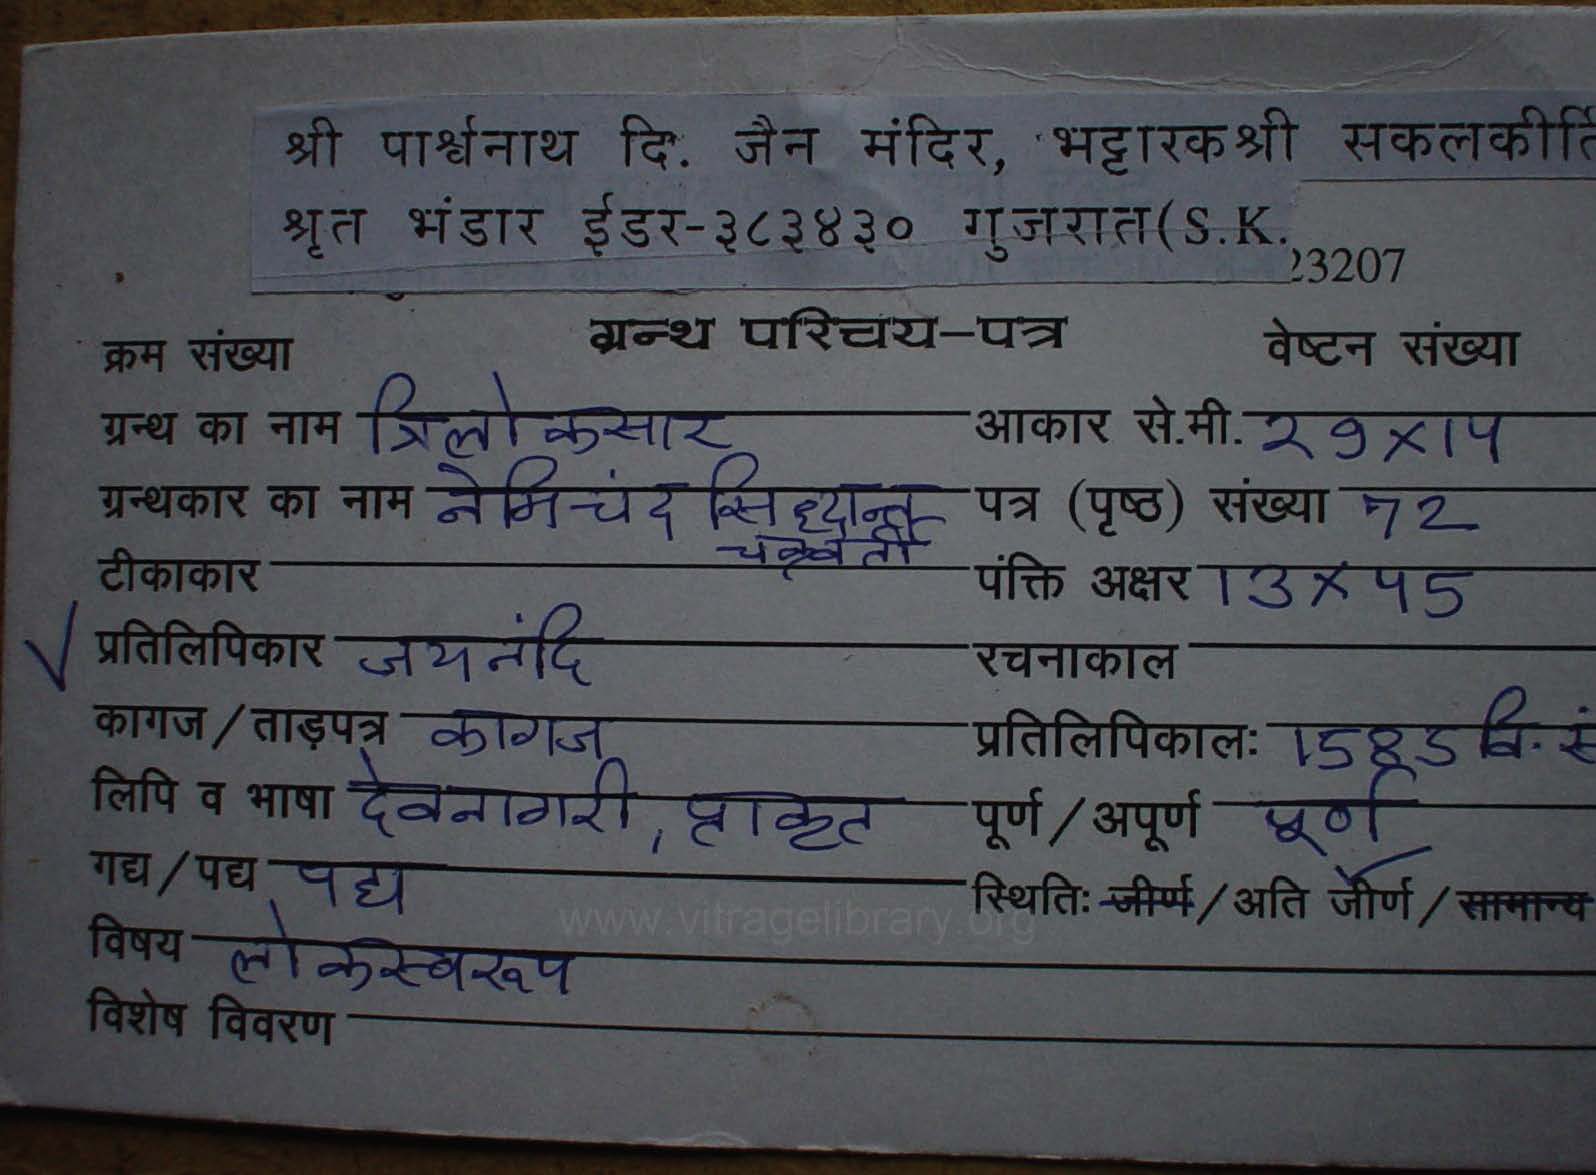 श्री पार्श्वनाथ दि. जैन मंदिर, भट्टारकश्री सकलकीर्ति
श्रृत भंडार ईडर-३८३४३० गुजरात(S.K.
23207
क्रम संख्या ग्रन्थ परिचय-पत्र वेष्टन संख्या
ग्रन्थ का नाम त्रिलोकसार आकार से.मी. 29x14
ग्रन्थकार का नाम नेमिचंद सिद्धान्त पत्र (पृष्ठ) संख्या 72
चक्रवर्ती
टीकाकार पंक्ति अक्षर 13x45
प्रतिलिपिकार जयनंदि रचनाकाल
कागज/ताड़पत्र कागज प्रतिलिपिकालः वि. सं
लिपि व भाषा देवनागरी, प्राकृत पूर्ण/अपूर्ण पूर्ण
गद्य/पद्य पद्य स्थितिः जीर्ण/अति जीर्ण/सामान्य
www.vitragelibrary.org
विषय लोकस्वरूप
विशेष विवरण